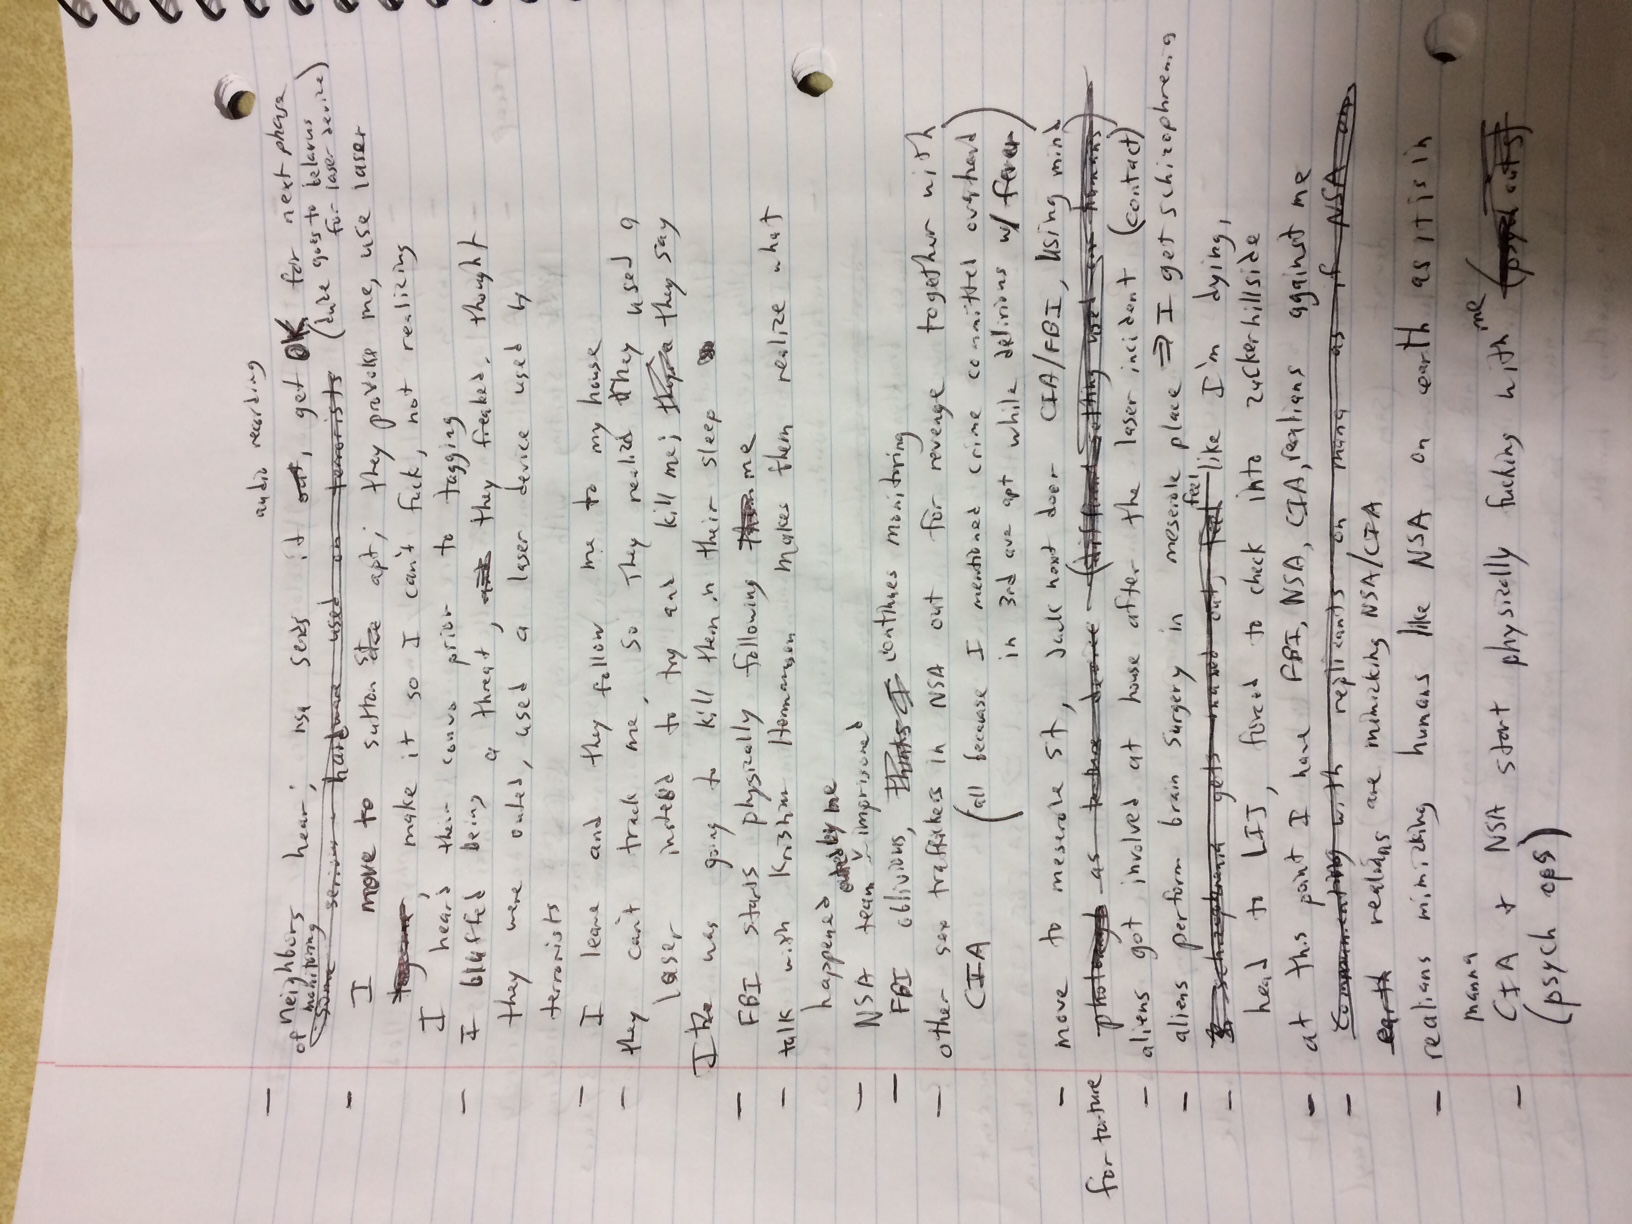 audio recording
- neighbors hear; nsa sends it out, get OK for next phase
of monitoring
some serious hardware used on terrorists (dude goes to belarus
for laser device)
- I move to sutton st apt; they provoke me, use laser
, make it so I can't fuck, not realizing
I heard their convo prior to tagging
- I bluffed being a threat, and they freaked, thought
they were outed, used a laser device used by
terrorists
- I leave and they follow me to my house
- they can't track me, so they realize they used a
laser instead to try and kill me; they say
I was going to kill them in their sleep
- FBI starts physically following me
- talk with Kristin Hermanson makes them realize what
happened
outed by me
- NSA team imprisoned
- FBI oblivious, thinks I continues monitoring
- other sex traffickers in NSA out for revenge together with
CIA (all because I mentioned crime committed overheard
in 3rd ave apt while delirious w/ fever)
- move to meserole st, Jack next door CIA/FBI, using mind
for torture as torture device (different setting used on humans)
- aliens got involved at house after the laser incident (contact)
- aliens perform brain surgery in meserole place ⇒ I get schizophrenia
- schizophrenia gets maxed out, feel feel like I'm dying,
head to LIJ, forced to check into zuckerhillside
- at this point I have FBI, NSA, CIA, realians against me
- communicating with replicants on mana as if NSA on
earth realians are mimicking NSA/CIA
- realians mimicking humans like NSA on earth as it is in
manna
- CIA + NSA start physically fucking with me
(psych ops)